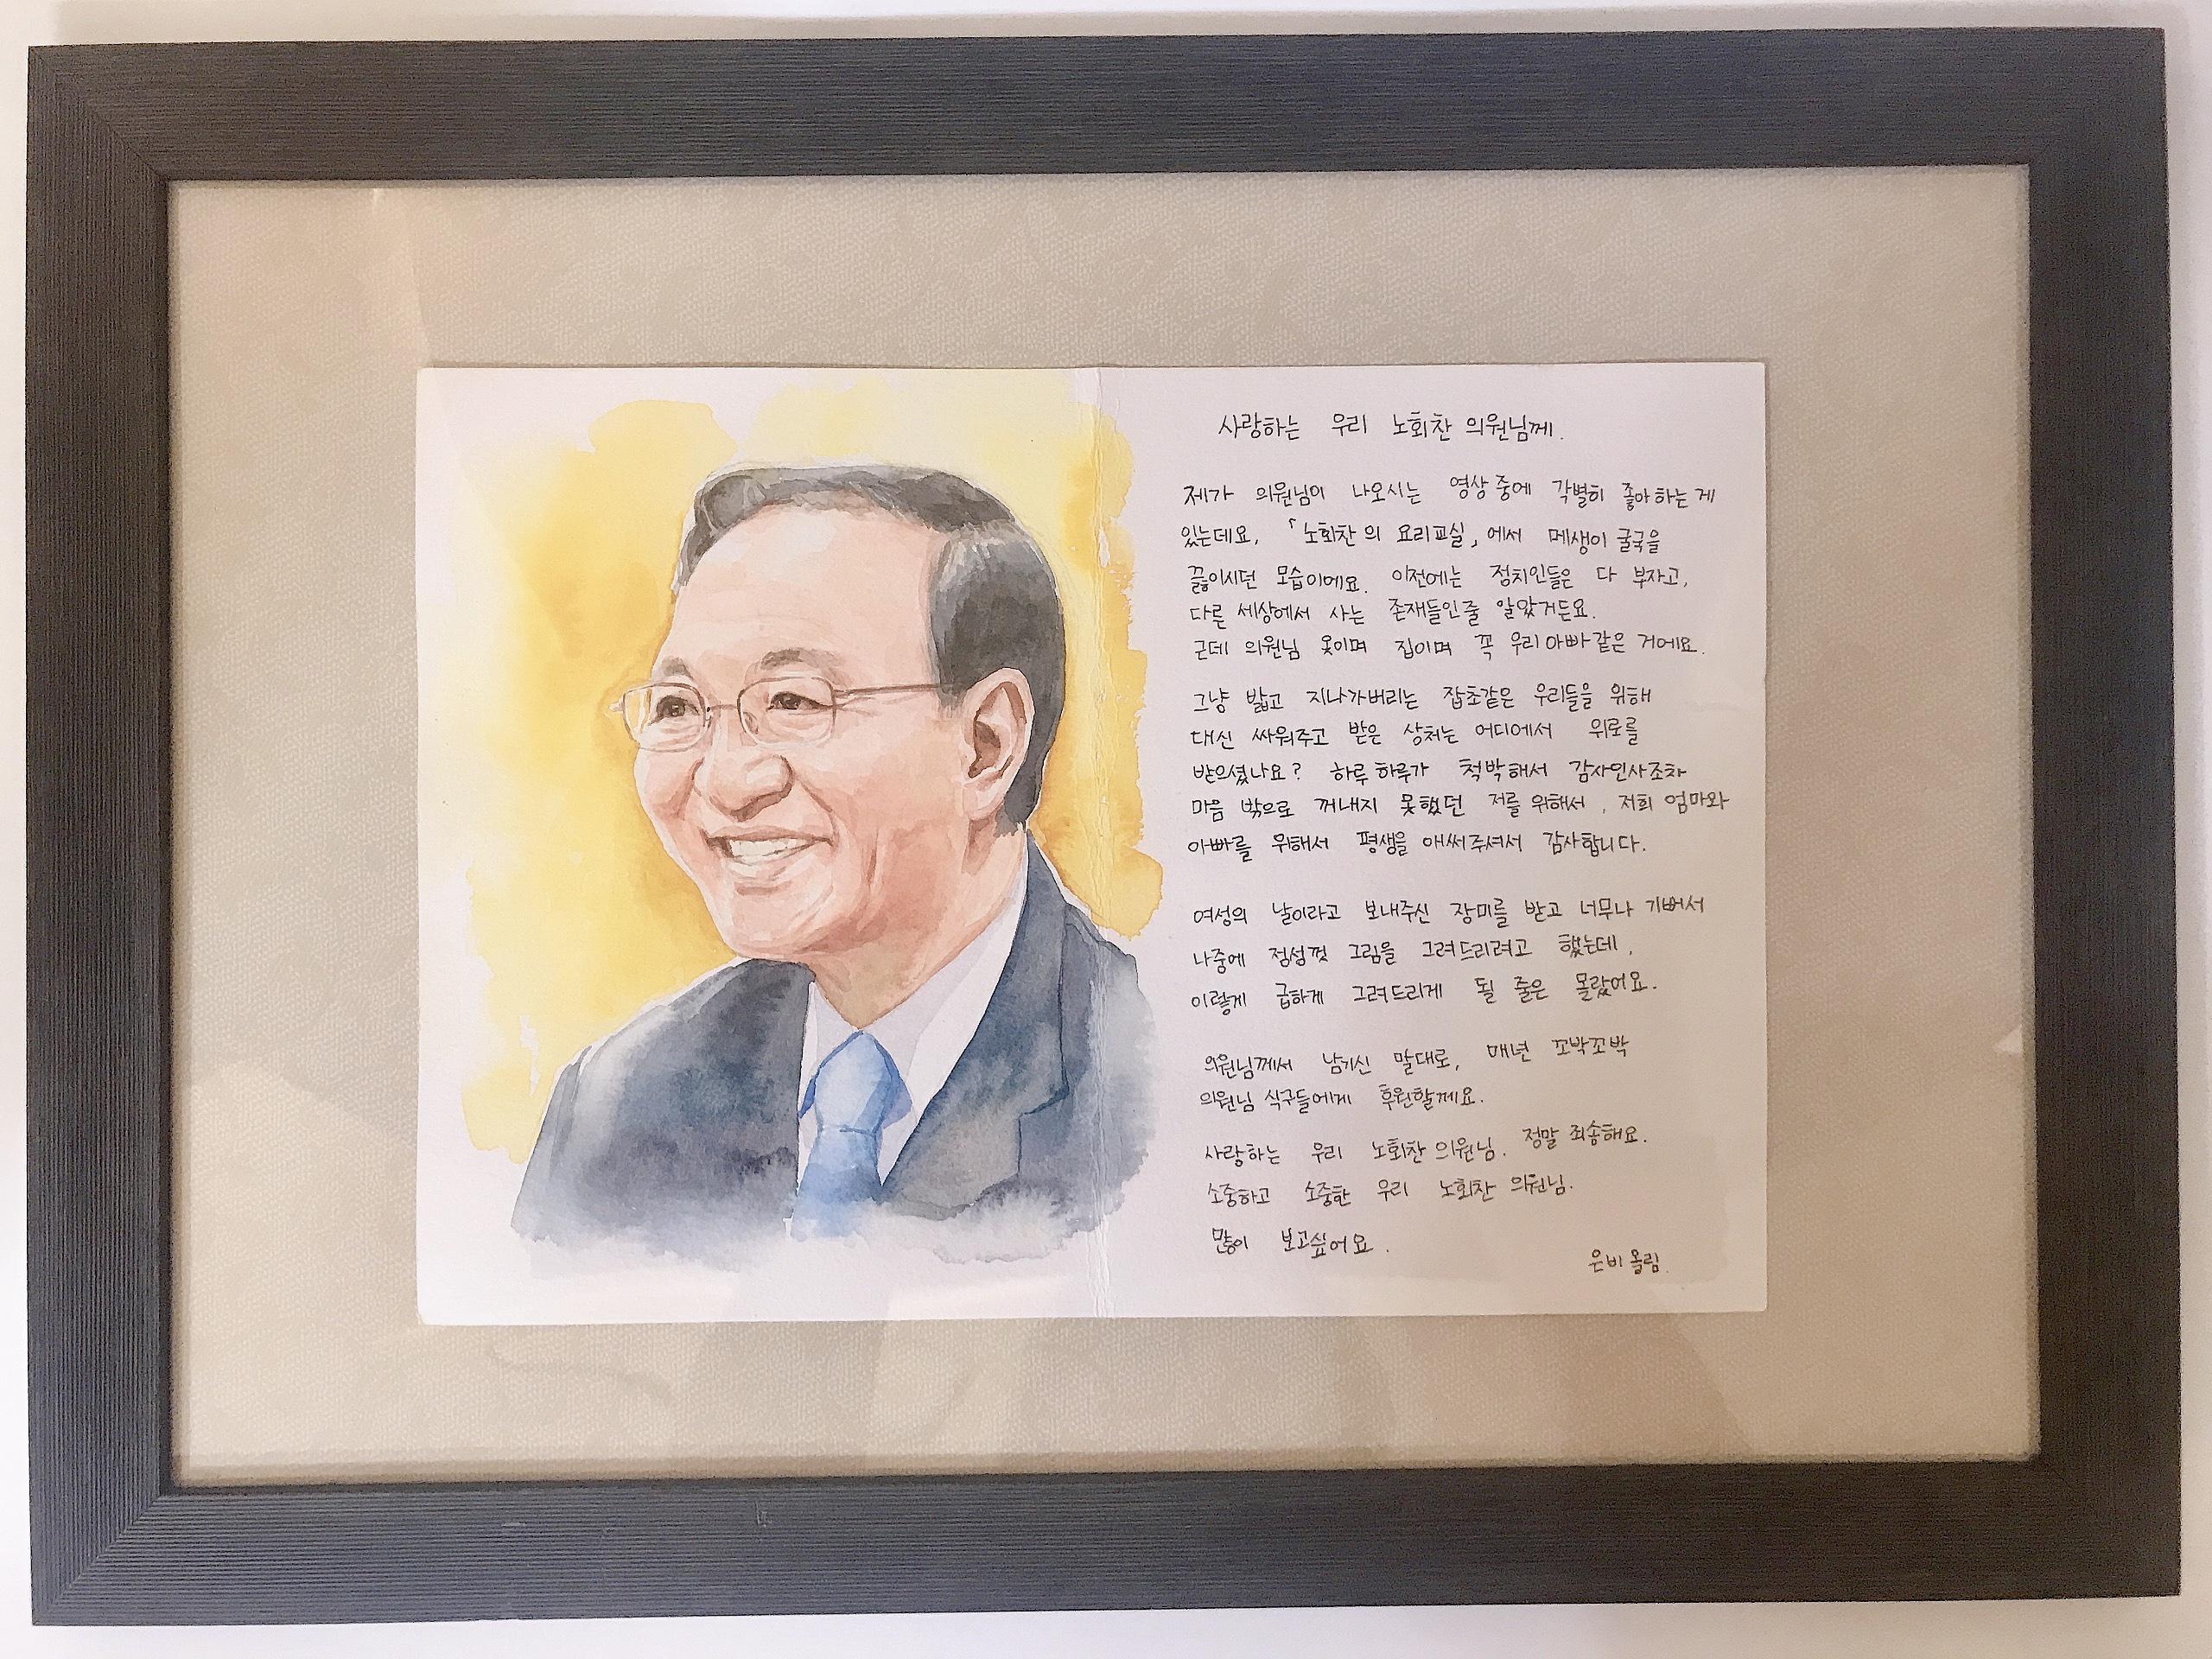 사랑하는 우리 노회찬 의원님께.
제가 의원님이 나오시는 영상 중에 각별히 좋아하는게
있는데요, 「노회찬의 요리교실」에서 메생이 굴국을
끓이시던 모습이에요. 이전에는 정치인들은 다 부자고,
다른 세상에서 사는 존재들인줄 알았거든요.
근데 의원님 옷이며 집이며 꼭 우리 아빠 같은 거에요.
그냥 밟고 지나가버리는 잡초같은 우리들을 위해
대신 싸워주고 받은 상처는 어디에서 위로를
받으셨나요? 하루 하루가 척박해서 감사인사조차
마음 밖으로 꺼내지 못했던 저를 위해서, 저희 엄마와
아빠를 위해서 평생을 애써주셔서 감사합니다.
여성의 날이라고 보내주신 장미를 받고 너무나 기뻐서
나중에 정성껏 그림을 그려드리려고 했는데,
이렇게 급하게 그려드리게 될 줄은 몰랐어요.
의원님께서 남기신 말대로, 매년 꼬박꼬박
의원님 식구들에게 후원할께요.
사랑하는 우리 노회찬 의원님. 정말 죄송해요.
소중하고 소중한 우리 노회찬 의원님.
많이 보고싶어요.
은비 올림.